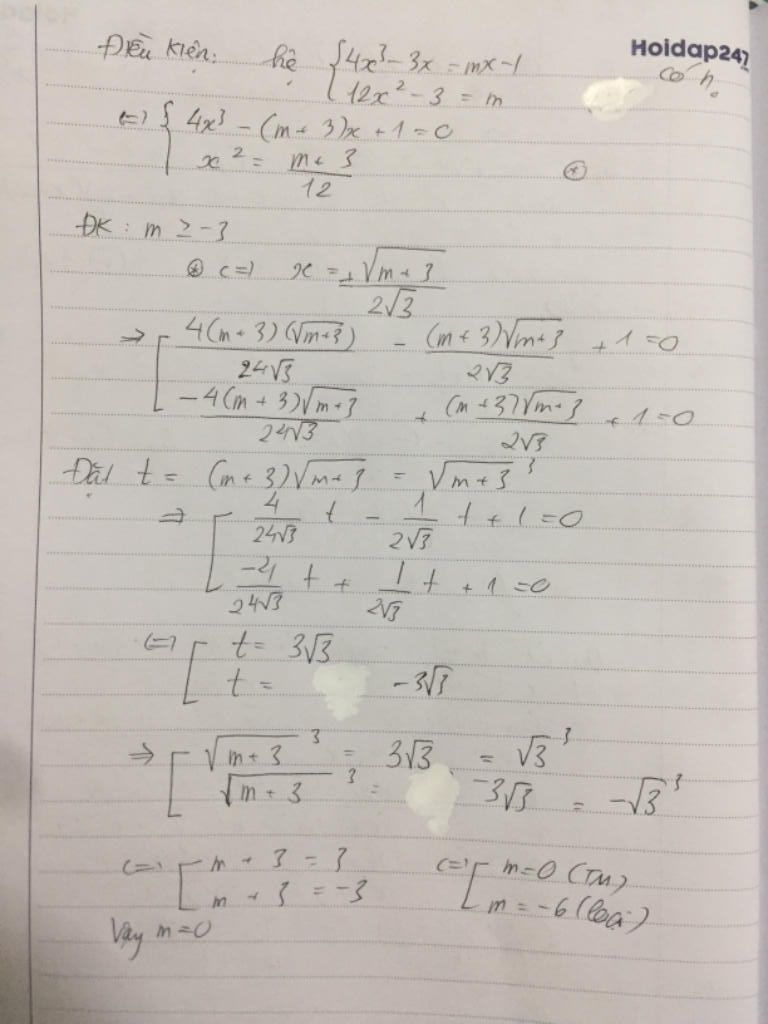 Hoidap247
Điều kiện: hệ { 4x³ - 3x = mx - 1
12x² - 3 = m có n₀
<=> { 4x³ - (m + 3)x + 1 = 0
x² = (m + 3)/12 (*)
ĐK: m ≥ -3
(*) <=> x = ±√(m + 3)/(2√3)
=> [ 4(m + 3)(√(m+3))/(24√3) - (m + 3)√(m+3)/(2√3) + 1 = 0
-4(m + 3)√(m+3)/(24√3) + (m + 3)√(m+3)/(2√3) + 1 = 0
Đặt t = (m + 3)√(m+3) = √(m+3)³
=> [ 4/(24√3) t - 1/(2√3) t + 1 = 0
-4/(24√3) t + 1/(2√3) t + 1 = 0
<=> [ t = 3√3
t = -3√3
=> [ √(m+3)³ = 3√3 = √3³
√(m+3)³ = -3√3 = -√3³
<=> [ m + 3 = 3 <=> [ m = 0 (TM)
m + 3 = -3 m = -6 (loại)
Vậy m = 0